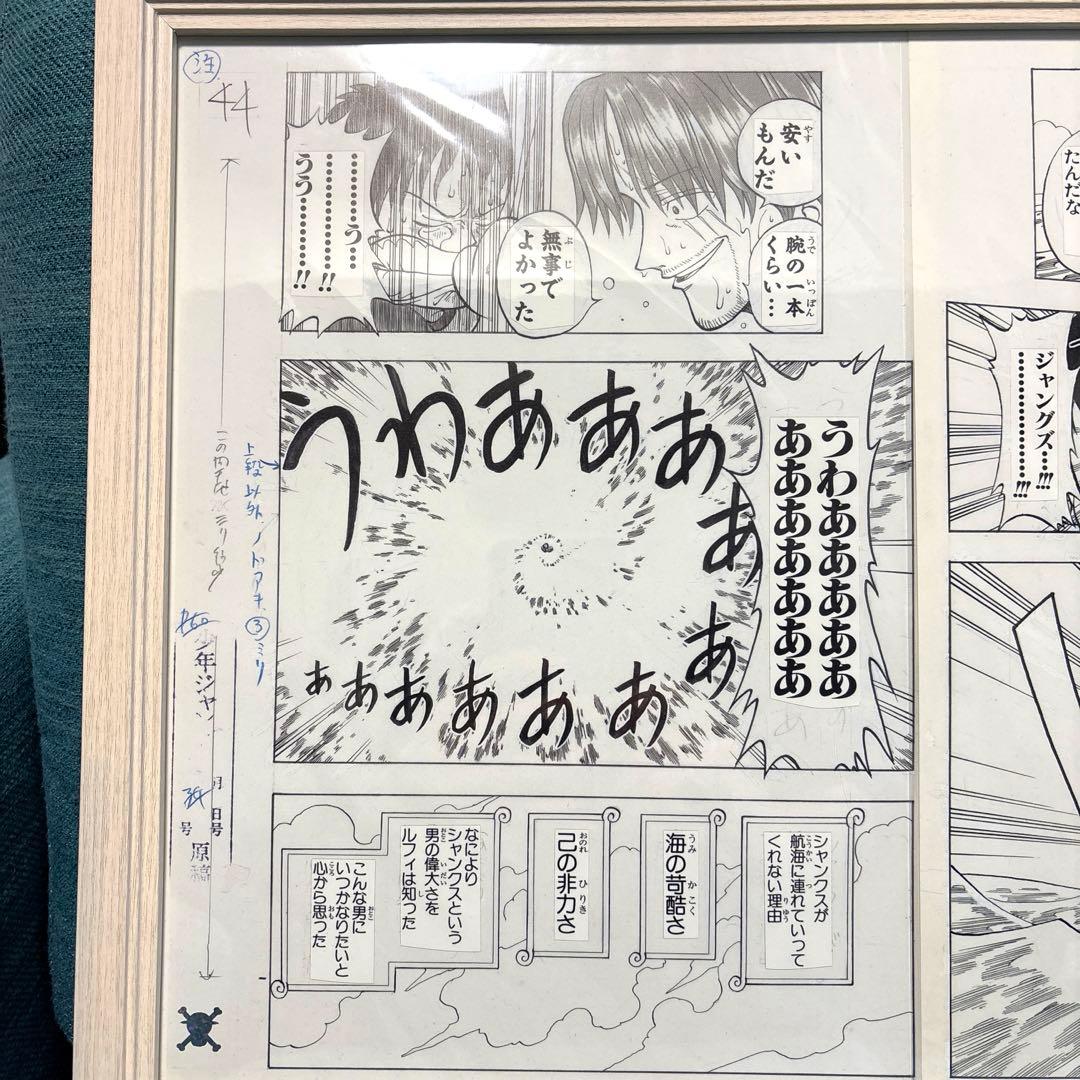 注
44
安い
もんだ
腕の一本
くらい…
無事で
よかった
…………う……
……………!!
うう…………!!
うわあああああ
あああああああ
うわああああああああああああ
シャンクスが
航海に連れていって
くれない理由
海の苛酷さ
己の非力さ
なにより
シャンクスという
男の偉大さを
ルフィは知った
こんな男に
いつかなりたいと
心から思った
上段以外ノドアキ③ミリ
少年ジャン
月
日号
号
原稿
たんだな
ジャングズ…!!!
……………!!!